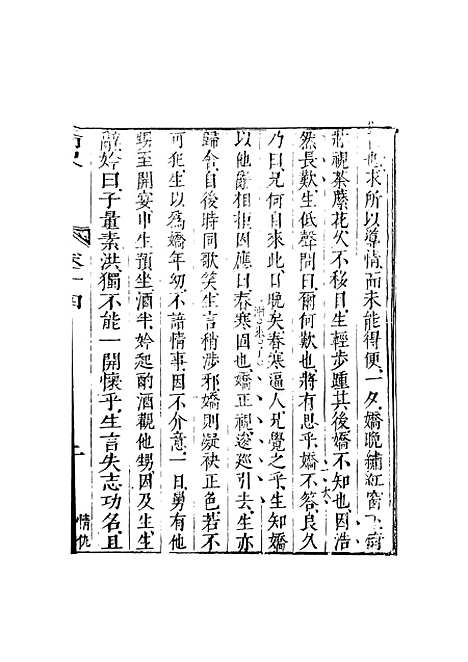 也求所以導情而未能得便一夕嬌晩繡紅窗下倚
牀視荼䕷花久不移目生輕步踵其後嬌不知也因浩
然長歎生低聲問曰爾何歎也將有思乎嬌不答良久
乃曰兄何自來此日晩矣春寒逼人兄覺之乎生知嬌
以他辭相拒因應曰春寒固也嬌正視逡廵引去生亦
歸舍自後時同歌笑生言稍涉邪嬌則凝袂正色若不
可犯生以爲嬌年幼不諳情事因不介意一日舅有他
甥至開宴申生預坐酒半妗起酌酒觀他甥因及生生
辭妗曰子量素洪獨不能一開懷乎生言失志功名且
卷十四
情仇